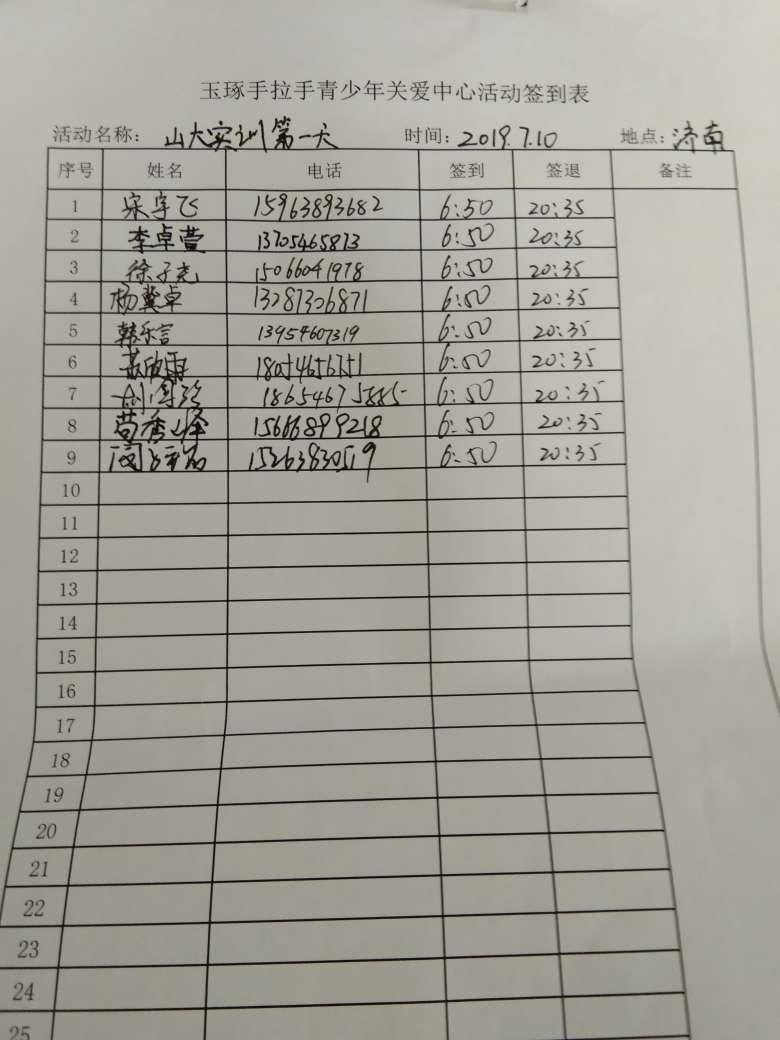 玉琢手拉手青少年关爱中心活动签到表
活动名称: 山大实训第一天 时间: 2019.7.10 地点: 济南
序号 姓名 电话 签到 签退 备注
1 宋宇飞 15963893682 6:50 20:35
2 李卓萱 13705465873 6:50 20:35
3 徐子尧 15066041978 6:50 20:35
4 杨冀卓 13287306871 6:50 20:35
5 韩乐言 13954607319 6:50 20:35
6 6:50 20:35
7 18654675885 6:50 20:35
8 6:50 20:35
9 15263830519 6:50 20:35
10
11
12
13
14
15
16
17
18
19
20
21
22
23
24
25